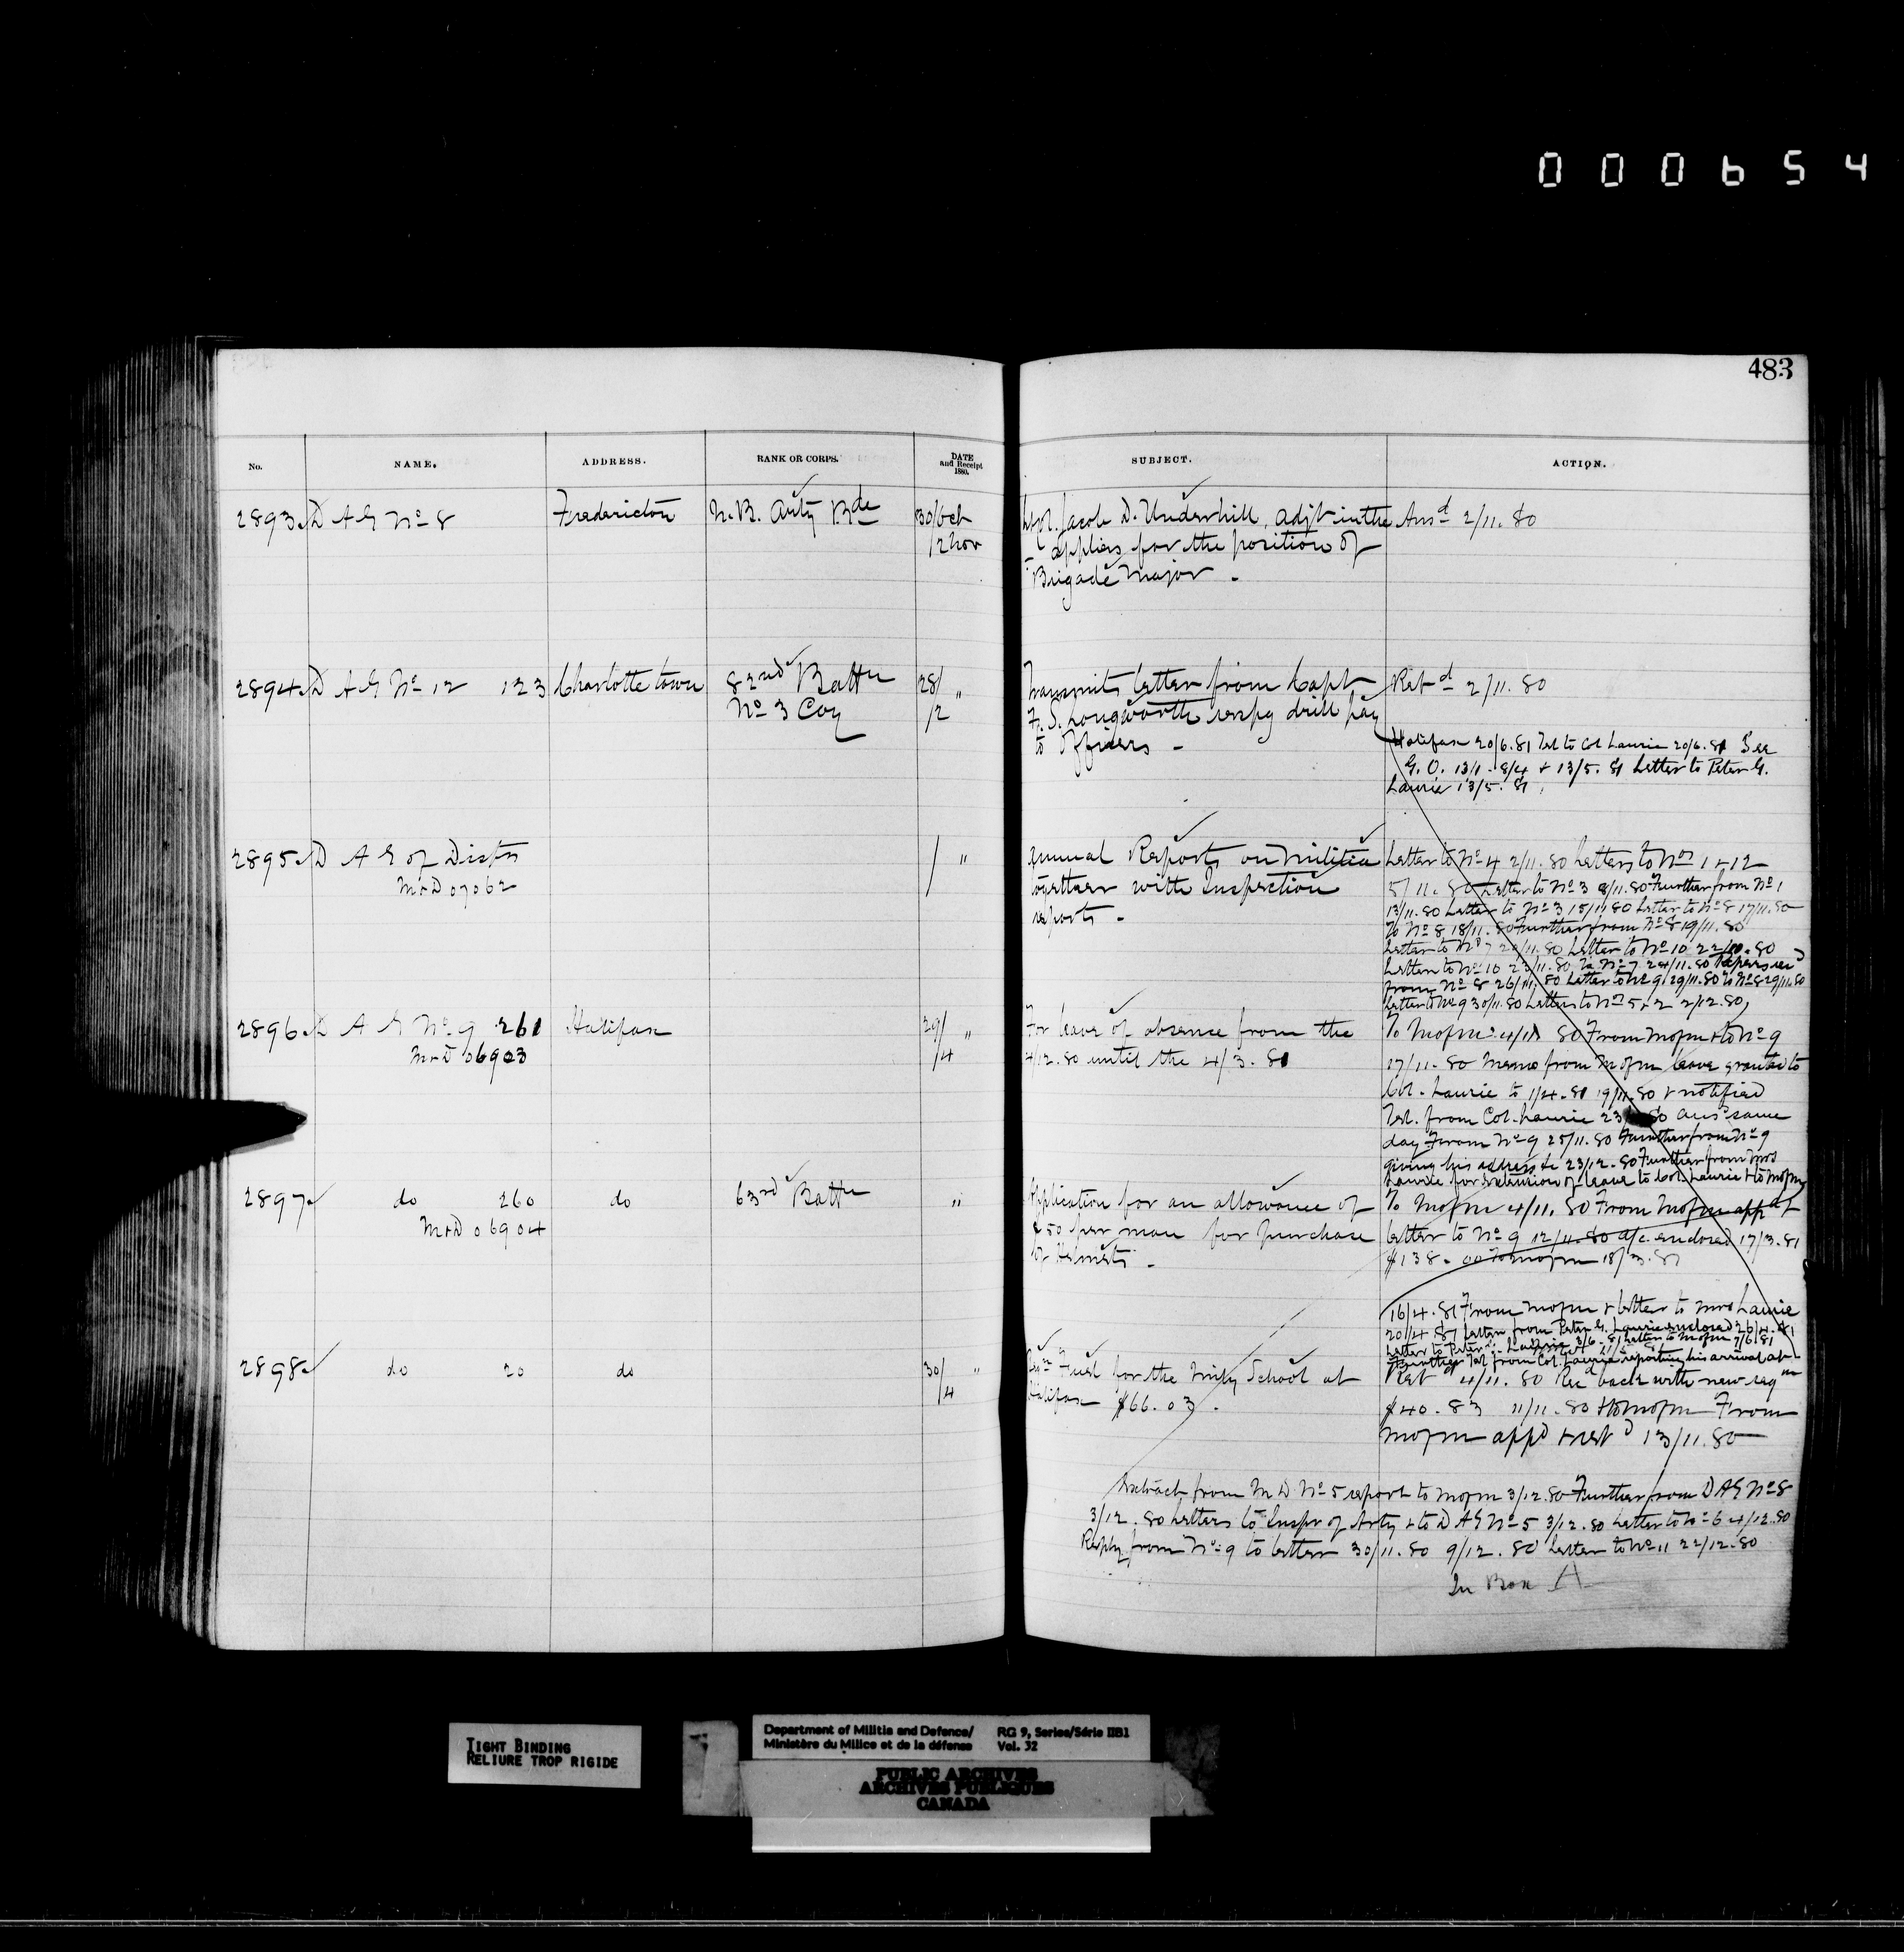 000654
483
No. NAME. ADDRESS. RANK OR CORPS. DATE and Receipt 1880. SUBJECT. ACTION.
2893 D A G No 8 Fredericton N.B. Arty Bde 30/Oct /2 Nov
Lt Col. Jacob D. Underhill, Adjt in the
applies for the position of
Brigade Major -
Ansd 2/11.80
2894 D A G No 12 123 Charlottetown 82nd Battn 28/ "
No 3 Coy /2
Transmits letter from Capt
F. S. Longworth respg drill pay
to Officers -
Retd 2/11.80
Halifax 20/6.81 Tel to Col Laurie 20/6.81 See
G.O. 13/1 - 8/4 + 13/5.81 Letter to Peter G.
Laurie 13/5.81
2895 D A G of Distrs / "
M&D 07062
Annual Reports on Militia
together with Inspection
reports -
Letter to No 4 2/11.80 Letters to Nos 1 & 12
5/11.80 Letter to No 3 8/11.80 Further from No 1
13/11.80 Letter to No 3 15/11.80 Letter to No 8 17/11.80
To No 8 18/11.80 Further from No 8 19/11.80
Letter to No 7 20/11.80 Letter to No 10 22/11.80
Letter to No 10 23/11.80 To No 7 24/11.80 Papers recd
from No 8 26/11.80 Letter to No 9 29/11.80 To No 8 29/11.80
Letter to No 9 30/11.80 Letters to Nos 5 & 2 2/12.80
2896 D A G No 9 261 Halifax 29/ "
M&D 06903 /4
For leave of absence from the
4/12.80 until the 4/3.81
To Mofm 4/11 80 From Mofm & to No 9
17/11.80 Memo from Mofm leave granted to
Col. Laurie to 1/4.81 19/11.80 & notified
Tel. from Col. Laurie 23/ 80 ansd same
day From No 9 25/11.80 Further from No 9
giving his address &c 23/12.80 Further from Mrs
Laurie for extension of leave to Col. Laurie & to Mofm
2897 do 260 do 63rd Battn "
M&D 06904
Application for an allowance of
$ 50 per man for purchase
of Helmets -
To Mofm 4/11.80 From Mofm appd &
letter to No 9 12/11.80 a/c enclosed 17/3.81
$138.00 To Mofm 18/3.81
16/4.81 From Mofm & letter to Mrs Laurie
20/4.81 Letter from Peter G. Laurie enclosed 26/4.81
Letter to Peter G. Laurie 3/6.81 Letter to Mofm 7/6.81
Further Tel from Col. Laurie reporting his arrival at
2898 do 20 do 30/ "
/4
Reqn Fuel for the Mily School at
Halifax $66.03.
Retd 4/11.80 Recd back with new reqn
$40.83 11/11.80 & to Mofm From
Mofm appd & retd 13/11.80
Extract from M D No 5 report to Mofm 3/12.80 Further from D A G No 8
3/12.80 Letters to Inspr of Arty & to D A G No 5 3/12.80 Letter to No 6 4/12.80
Reply from No 9 to letter 30/11.80 9/12.80 Letter to No 11 22/12.80
In Box A
TIGHT BINDING
RELIURE TROP RIGIDE
Department of Militia and Defence/
Ministère du Milice et de la défense
RG 9, Series/Série IIB1
Vol. 32
PUBLIC ARCHIVES
ARCHIVES PUBLIQUES
CANADA